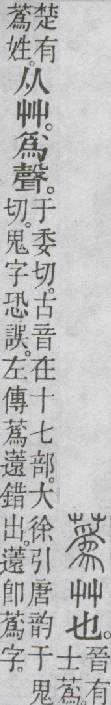 蔿艸也。晉有
士蔿。
楚有
蔿姓。
从艸。爲聲。
于委切。古音在十七部。大徐引唐韵于鬼
切。鬼字恐誤。左傳蔿薳錯出。薳卽蔿字。